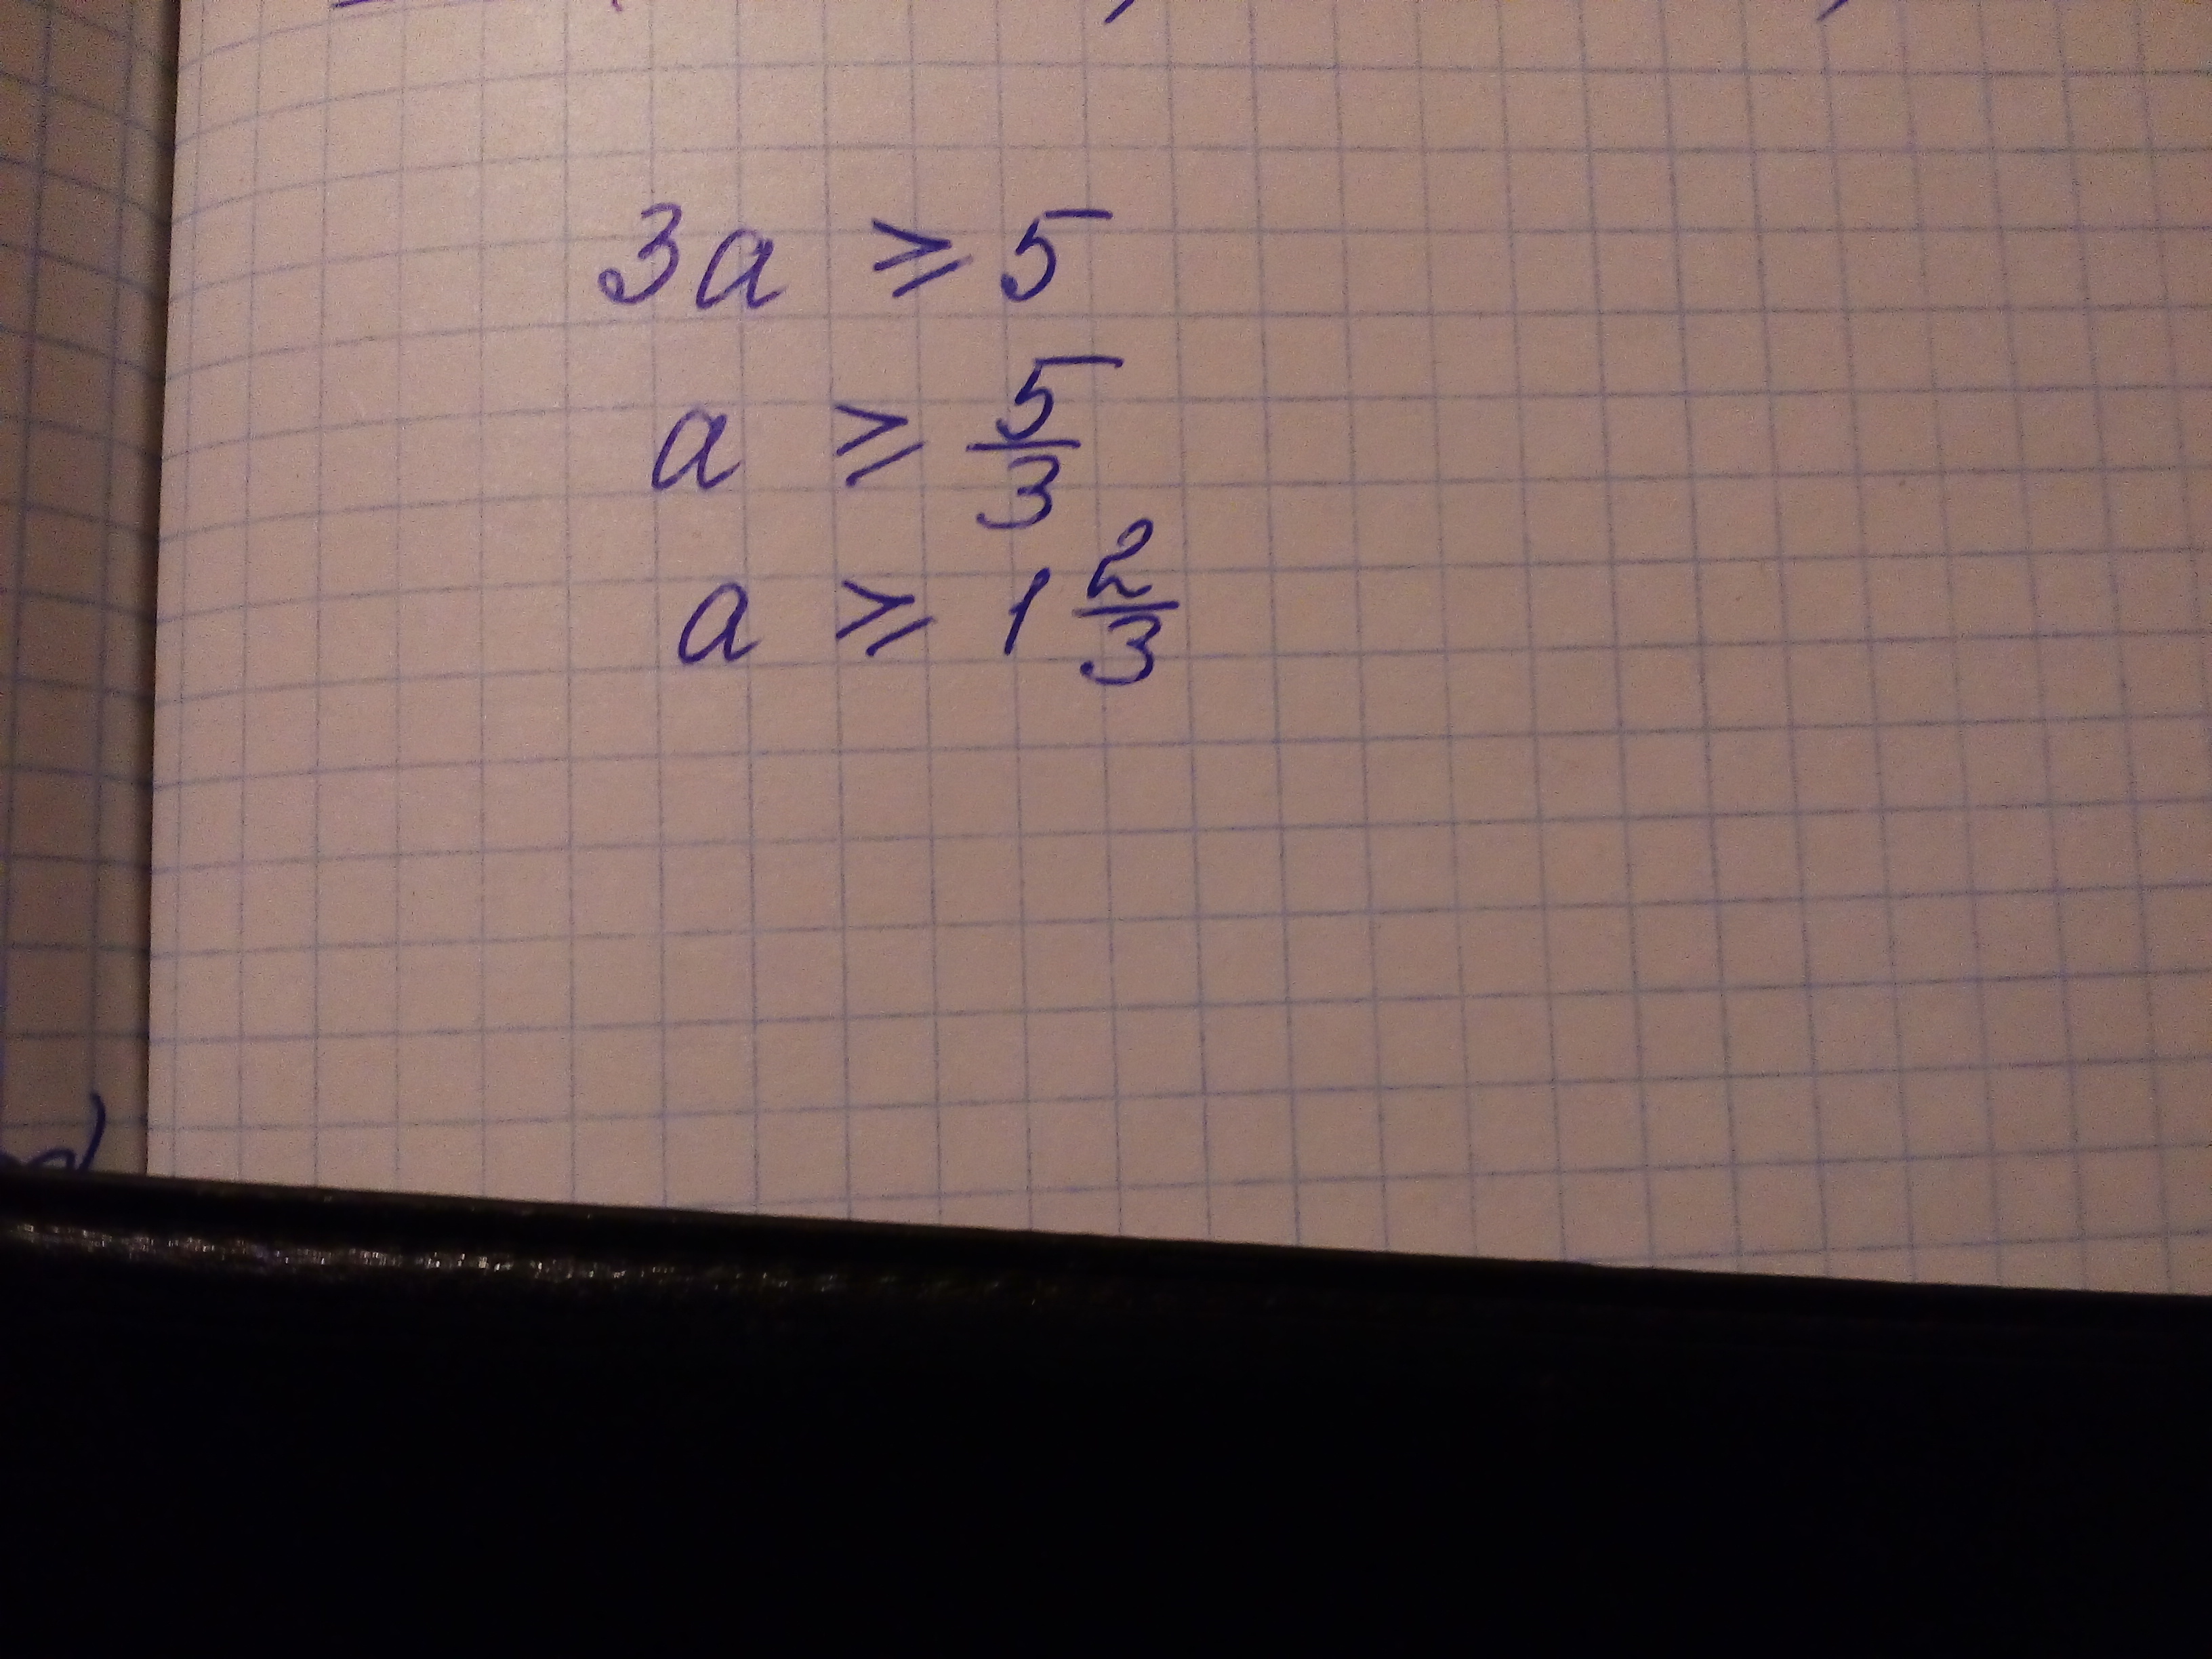 3a ⩾ 5
a ⩾ 5/3
a ⩾ 1 2/3